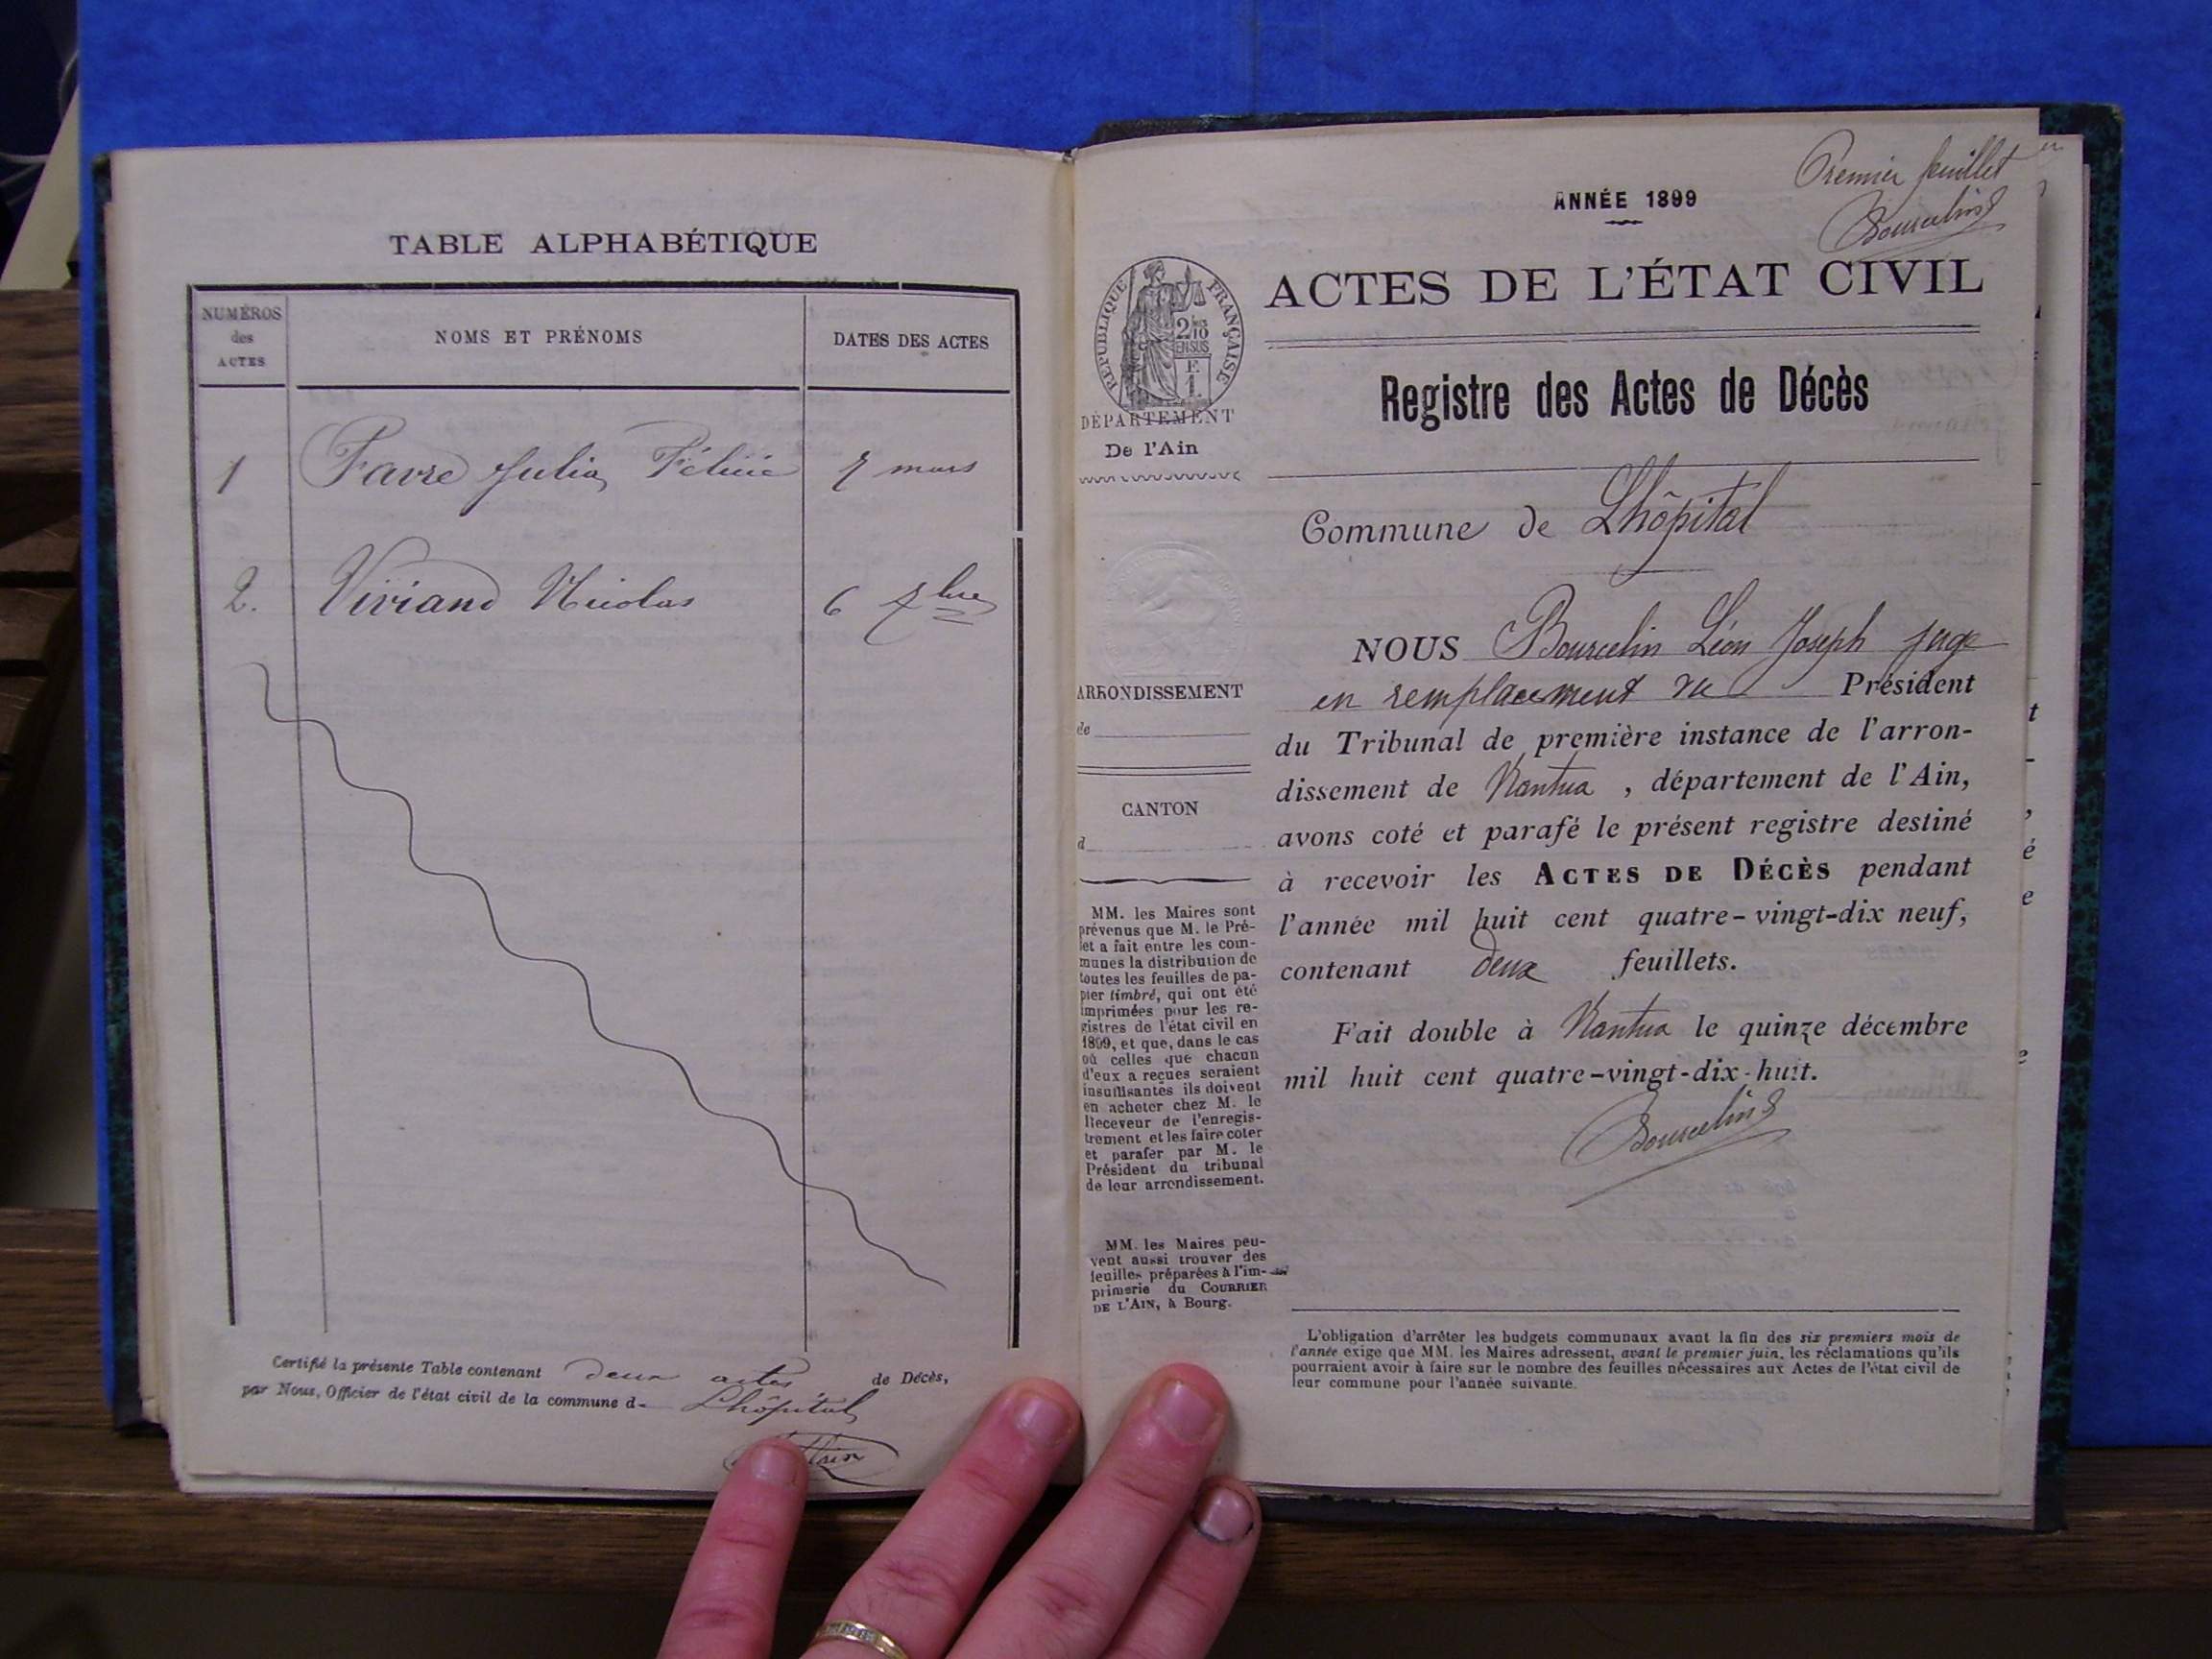 TABLE ALPHABÉTIQUE
NUMÉROS
des
ACTES
NOMS ET PRÉNOMS
DATES DES ACTES
1 Favre Julia Félicie mars
2. Viviand Nicolas 6 7bre
Certifié la présente Table contenant deux actes de Décès,
par Nous, Officier de l'état civil de la commune d- Lhôpital
Premier feuillet
Bourcelin
ANNÉE 1899
ACTES DE L'ÉTAT CIVIL
RÉPUBLIQUE FRANÇAISE
2/10
EN SUS
DÉPARTEMENT
De l'Ain
Registre des Actes de Décès
Commune de Lhôpital
NOUS Bourcelin Léon Joseph juge
en remplacement du Président
du Tribunal de première instance de l'arron-
dissement de Nantua, département de l'Ain,
avons coté et parafé le présent registre destiné
à recevoir les ACTES DE DÉCÈS pendant
l'année mil huit cent quatre-vingt-dix neuf,
contenant deux feuillets.
Fait double à Nantua le quinze décembre
mil huit cent quatre-vingt-dix-huit.
Bourcelin
ARRONDISSEMENT
de
CANTON
d
MM. les Maires sont
prévenus que M. le Pré-
fet a fait entre les com-
munes la distribution de
toutes les feuilles de pa-
pier timbré, qui ont été
imprimées pour les re-
gistres de l'état civil en
1899, et que, dans le cas
où celles que chacun
d'eux a reçues seraient
insuffisantes ils doivent
en acheter chez M. le
Receveur de l'enregis-
trement et les faire coter
et parafer par M. le
Président du tribunal
de leur arrondissement.
MM. les Maires peu-
vent aussi trouver des
feuilles préparées à l'im-
primerie du COURRIER
DE L'AIN, à Bourg.
L'obligation d'arrêter les budgets communaux avant la fin des six premiers mois de
l'année exige que MM. les Maires adressent, avant le premier juin, les réclamations qu'ils
pourraient avoir à faire sur le nombre des feuilles nécessaires aux Actes de l'état civil de
leur commune pour l'année suivante.